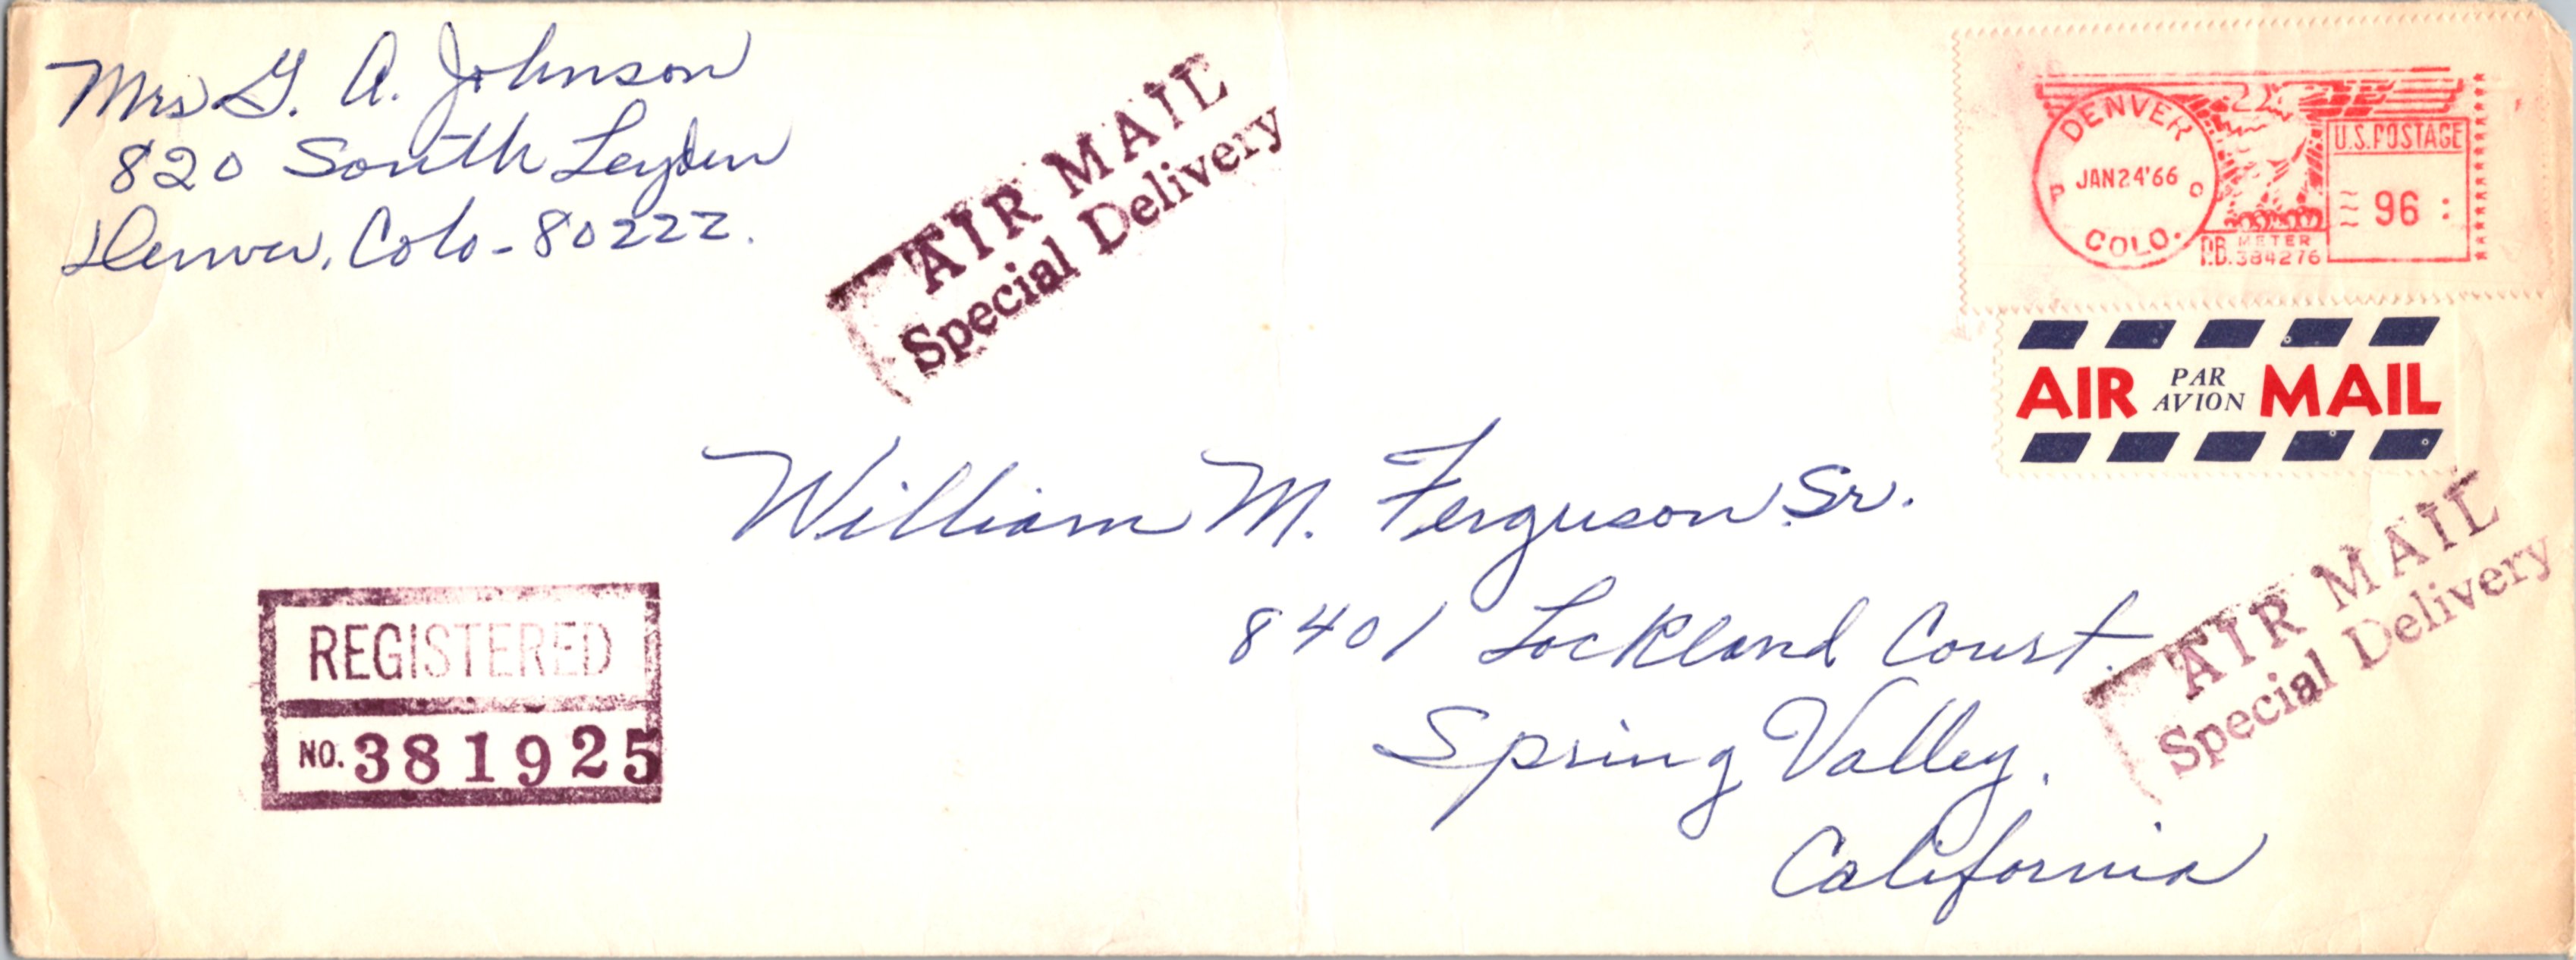 Mrs G. A. Johnson
820 South Leyden
Denver, Colo - 80222.
AIR MAIL
Special Delivery
DENVER
COLO.
JAN 24 '66
P O
U.S. POSTAGE
96
P.B. METER
384276
AIR PAR AVION MAIL
William M. Ferguson Sr.
8401 Lockland Court.
Spring Valley,
California
AIR MAIL
Special Delivery
REGISTERED
NO. 381925